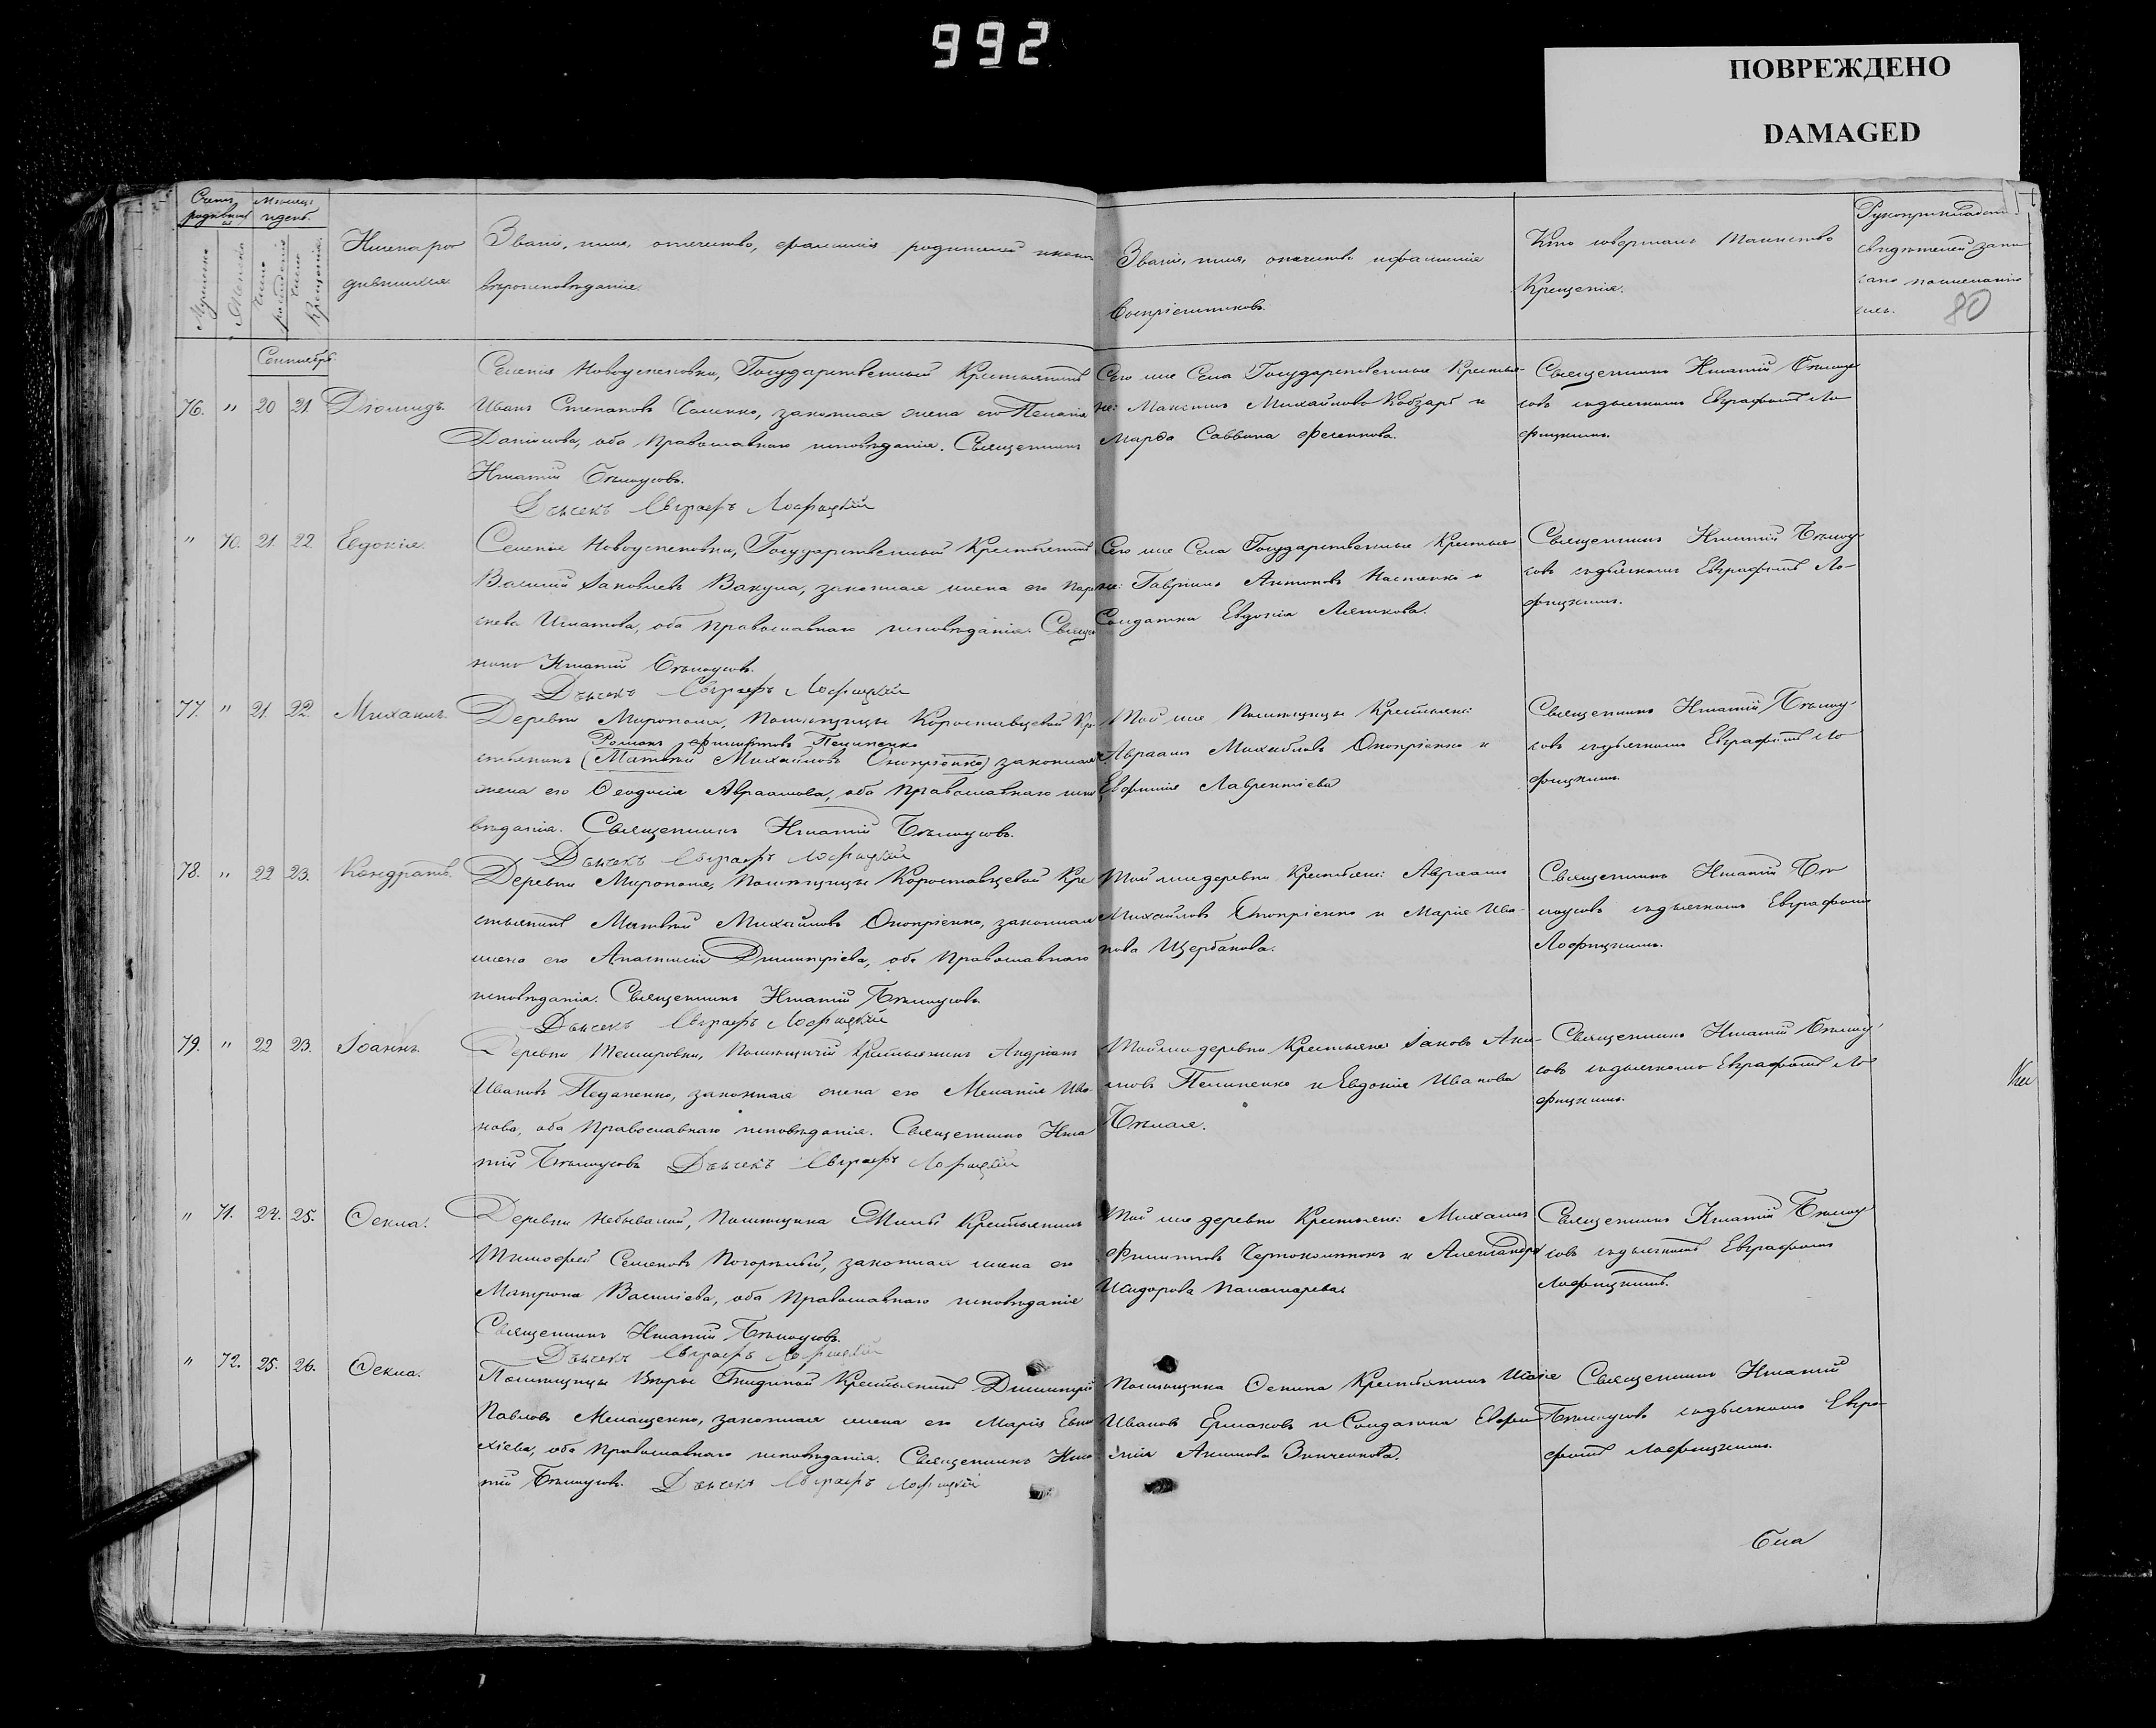 992
ПОВРЕЖДЕНО
DAMAGED
Счетъ родившихся
Мѣсяцъ и день
Мужеска
Женска
Число рожденія
Число Крещенія
Имена ро
дившихся
Званіе, имя, отчество, фамилія родителей
вѣроисповѣданія
Званіе, имя, отчество и фамилія
Воспріемниковъ.
Кто совершалъ Таинство
Крещенія.
80
Сентябрь
76. " 20 21. Діомидъ.
Селенія Новоуспеновки, Государственный Крестьянинъ
Иванъ Степановъ законная жена его Пелагія
Данилова, оба Православнаго исповѣданія. Священникъ
Игнатій Бѣлоусовъ.
Дьячекъ Евграфъ Лофицкій
Сего же Села Государственные Крестья-
не: Максимъ Михайловъ Кобзарь и
Марфа Саввина
Священникъ Игнатій Бѣлоу-
совъ съ дьячкомъ Евграфомъ Ло
фицкимъ.
" 70. 21. 22. Евдокія.
Селенія Новоуспеновки, Государственный Крестьянинъ
Василій Іаковлевъ Вакула, законная жена его Пара
скева Игнатова, оба Православнаго исповѣданія. Священ
никъ Игнатій Бѣлоусовъ.
Дьячекъ Евграфъ Лофицкій
Сего же Села Государственные Крестья
не: Гавріилъ Антоновъ и
Солдатка Евдокія Ляшкова.
Священникъ Игнатій Бѣлоу-
совъ съ дьячкомъ Евграфомъ Ло-
фицкимъ.
77. " 21. 22. Михаилъ.
Деревни Мирополя, Помѣщицы Коростовцевой Кре
Романъ Филиповъ Пелипенко
стьянинъ (Матвѣй Михайловъ Онопріенко) законная
жена его Феодосія Авраамова, оба Православнаго испо
вѣданія. Священникъ Игнатій Бѣлоусовъ.
Дьячекъ Евграфъ Лофицкій
Той же Помѣщицы Крестьяне:
Авраамъ Михайловъ Онопріенко и
Евфимія Лаврентіева
Священникъ Игнатій Бѣлоу-
совъ съ дьячкомъ Евграфомъ Ло
фицкимъ.
78. " 22 23. Кондратъ.
Деревни Мирополя, Помѣщицы Коростовцевой Кре
стьянинъ Матвѣй Михайловъ Онопріенко, законная
жена его Анастасія Димитріева, оба Православнаго
исповѣданія. Священникъ Игнатій Бѣлоусовъ.
Дьячекъ Евграфъ Лофицкій
Той же деревни Крестьяне: Авраамъ
Михайловъ Онопріенко и Марія Ива-
нова Щербакова.
Священникъ Игнатій Бѣ
лоусовъ съ дьячкомъ Евграфомъ
Лофицкимъ.
79. " 22 23. Іоаннъ.
Деревни Темировки, Помѣщичій Крестьянинъ Андріянъ
Ивановъ Педаненко, законная жена его Меланія Ива
нова, оба Православнаго исповѣданія. Священникъ Игна
тій Бѣлоусовъ Дьячекъ Евграфъ Лофицкій
Той же деревни Крестьяне: Іаковъ Аки-
мовъ Пелипенко и Евдокія Иванова
Бѣлая.
Священникъ Игнатій Бѣлоу-
совъ съ дьячкомъ Евграфомъ Ло
фицкимъ.
" 71. 24. 25. Ѳекла.
Деревни Небывалой, Помѣщика Крестьянинъ
Тимофей Семеновъ Погорѣлый, законная жена его
Матрона Василіева, оба Православнаго исповѣданія
Священникъ Игнатій Бѣлоусовъ.
Дьячекъ Евграфъ Лофицкій
Той же деревни Крестьяне: Михаилъ
Филиповъ и Александра
Исидорова Паномарева
Священникъ Игнатій Бѣлоу
совъ съ дьячкомъ Евграфомъ
Лофицкимъ.
" 72. 25. 26. Ѳекла.
Помѣщицы Вѣры Крестьянинъ Димитрій
Павловъ законная жена его Марія Евти
хіева, оба Православнаго исповѣданія. Священникъ Игна
тій Бѣлоусовъ. Дьячекъ Евграфъ Лофицкій
Помѣщика Крестьянинъ Исаія
Ивановъ Ермаковъ и Солдатка Евфи
мія Акимова Зинченкова.
Священникъ Игнатій
Бѣлоусовъ съ дьячкомъ Евгра-
фомъ Лофицкимъ.